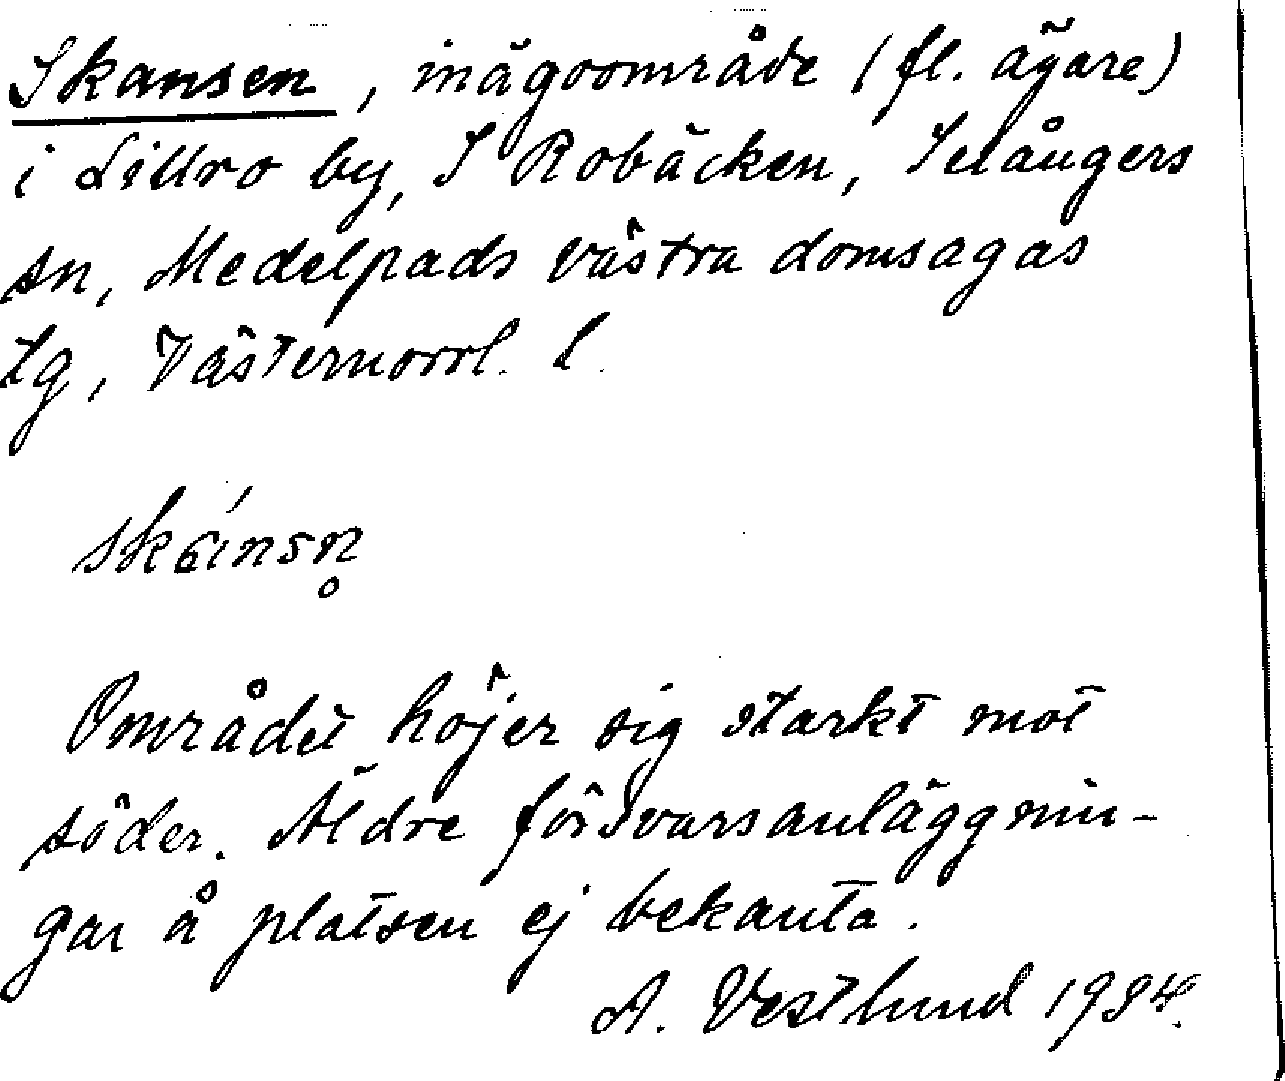 Skansen, inägoområde (fl. ägare)
i Lillro by, S Robäcken, Selångers
sn, Medelpads västra domsagas
tg, Västernorrl. l.
skánsn̥
Området höjer sig starkt mot
söder. Äldre försvarsanläggnin-
gar å platsen ej bekanta.
A. Vestlund 1934.